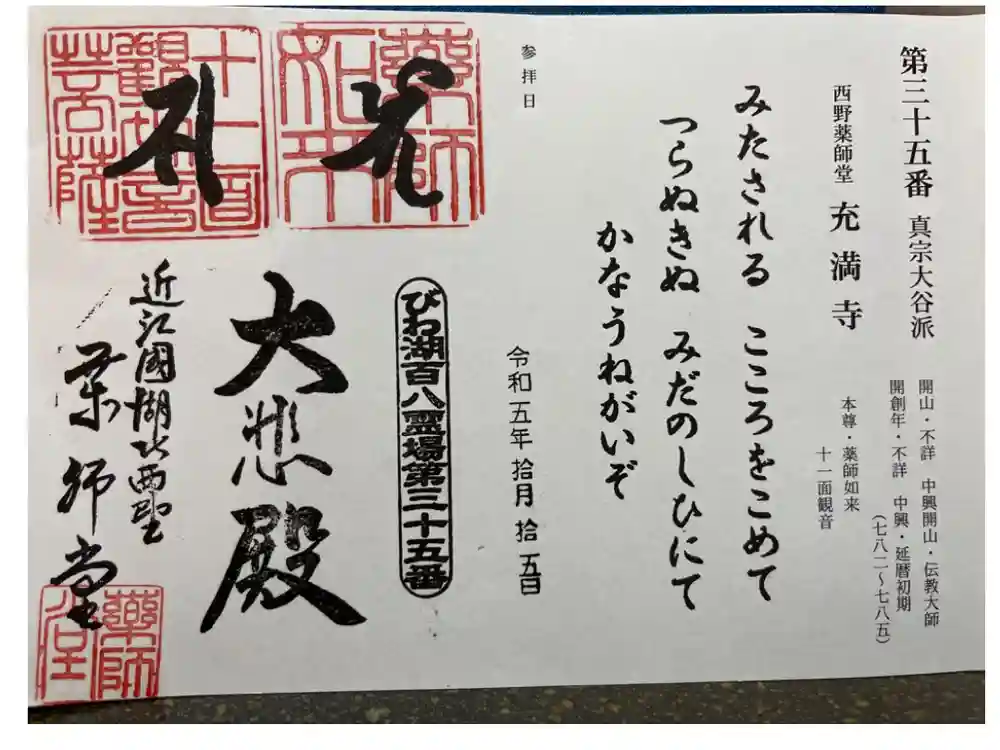 第三十五番 真宗大谷派
開山・不詳 中興開山・伝教大師
開創年・不詳 中興・延暦初期
(七八二〜七八五)
西野薬師堂 充満寺
本尊・薬師如来
十一面観音
みたされる こころをこめて
つらぬきぬ みだのしひにて
かなうねがいぞ
参拝日
令和五年 拾月 拾五日
びわ湖百八霊場第三十五番
薬師
如来
十一面
観世音
菩薩
大悲殿
近江國湖北西野
薬師堂